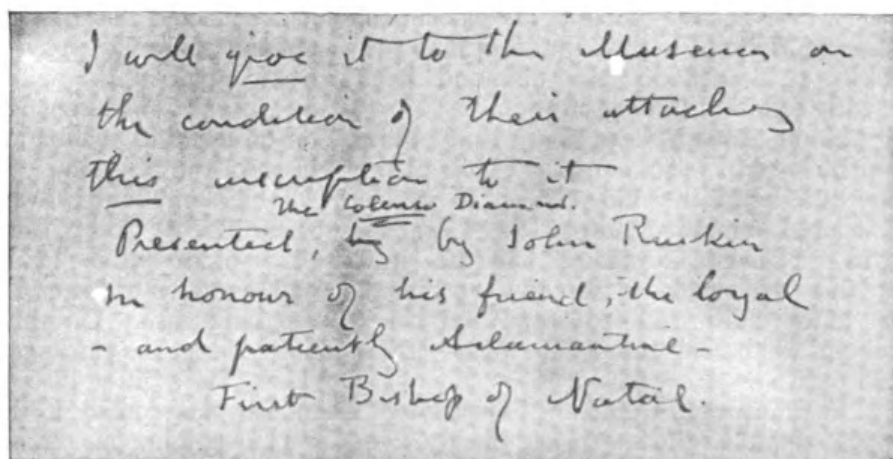 I will give it to the Museum on
the condition of their attaching
this inscription to it
The Colenso Diamond.
Presented, by by John Ruskin
in honour of his friend, the loyal
- and patiently Adamantine -
First Bishop of Natal.